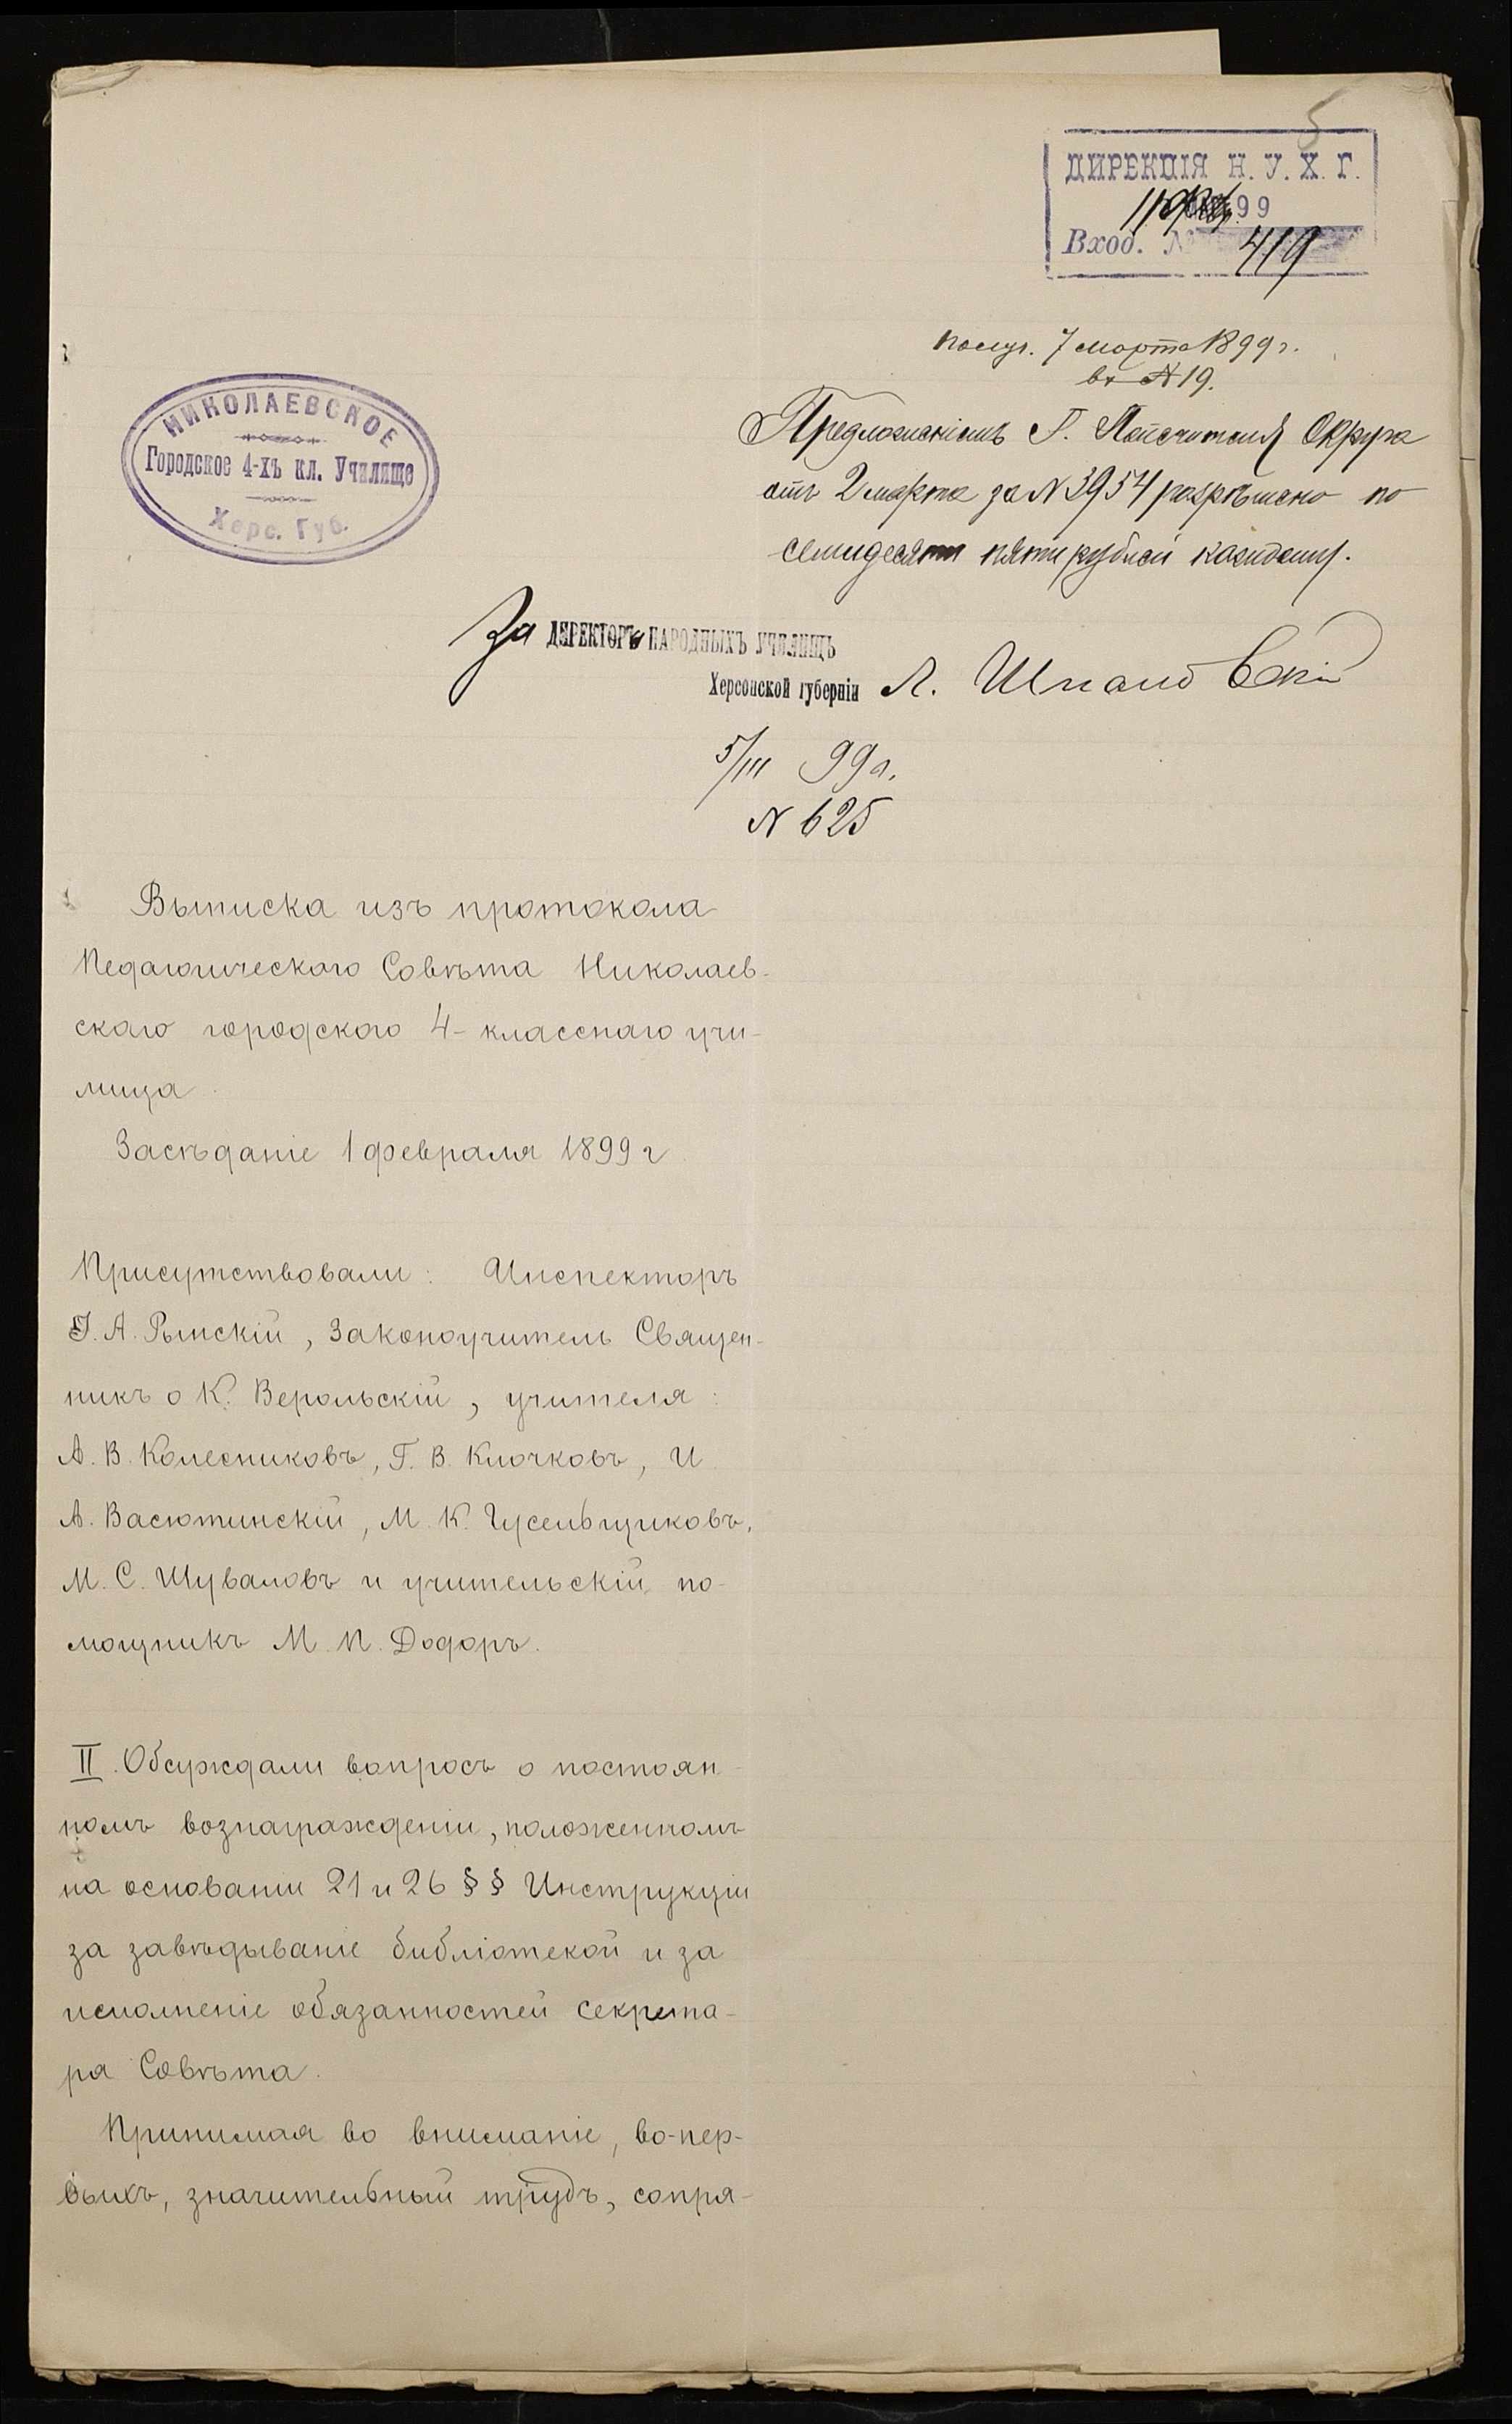 5
ДИРЕКЦІЯ Н. У. Х. Г.
99
Вход. № 419
Получ. 7 марта 1899 г.
вх № 19.
НИКОЛАЕВСКОЕ
Городское 4-хъ кл. Училище
Херс. Губ.
Предложеніемъ Г. Попечителя Округа
отъ 2 марта за N 3954 разрѣшено по
семидесяти пяти рублей каждому.
За ДИРЕКТОРа НАРОДНЫХЪ УЧИЛИЩЪ
Херсонской губерніи Л.
5/III 99 г.
N 625
Выписка изъ протокола
Педагогическаго Совѣта Николаев-
скаго городского 4-класснаго учи-
лища
Засѣданіе 1 февраля 1899 г
Присутствовали: Инспекторъ
А. Рымскій, Законоучитель Священ-
никъ о К. Верольскій, учителя:
А. В. Колесниковъ, Г. В. Клочковъ, И
А. Васютинскій, М. К. Гусельщиковъ,
М. С. Шуваловъ и учительскій по-
мощникъ М. П. Додоръ.
II. Обсуждали вопросъ о постоян-
номъ вознагражденіи, положенномъ
на основаніи 21 и 26 § § Инструкціи
за завѣдываніе библіотекой и за
исполненіе обязанностей секрета-
ря Совѣта.
Принимая во вниманіе, во-пер-
выхъ, значительный трудъ, сопря-